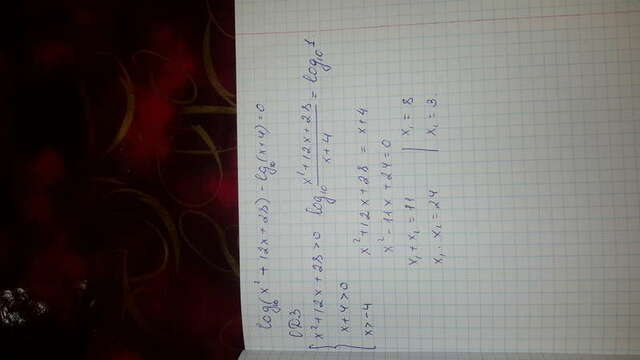 log₁₀(x² + 12x + 28) - lg₁₀(x+4) = 0
ОДЗ
x² + 12x + 28 > 0
x + 4 > 0
x > -4
log₁₀ (x² + 12x + 28)/(x + 4) = log₁₀ 1
x² + 12x + 28 = x + 4
x² - 11x + 24 = 0
x₁ + x₂ = 11 | x₁ = 8
x₁ · x₂ = 24 | x₂ = 3.